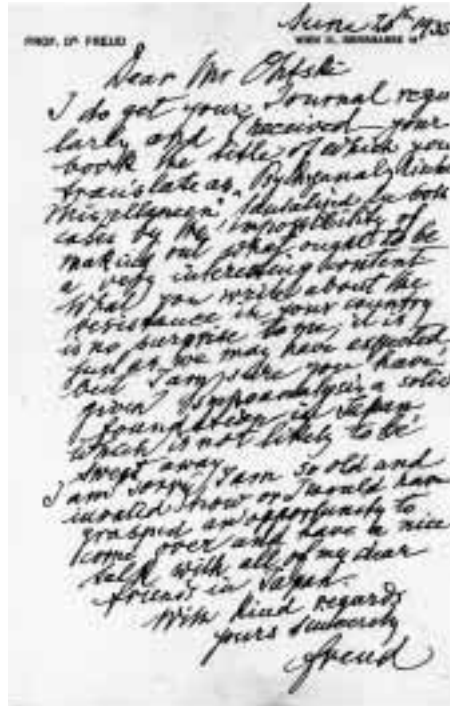 June 20th 1935
PROF. Dr FREUD WIEN IX., BERGGASSE 19
Dear Mr Ohtski
I do get your Journal regu
larly and received your
book the title of which you
translate as
tantalised in both
cases by the impossibility of
making out what ought to be
a very interesting content
What you write about the
resistance in your country
is no surprise to me, it is
just as we may have expected
but I am sure you have
given a solid
foundation in Japan
which is not likely to be
swept away.
I am sorry I am so old and
invalid now or I would have
grasped an opportunity to
come over and have a nice
talk with all of my dear
friends in Japan
With kind regards
yours sincerely
Freud